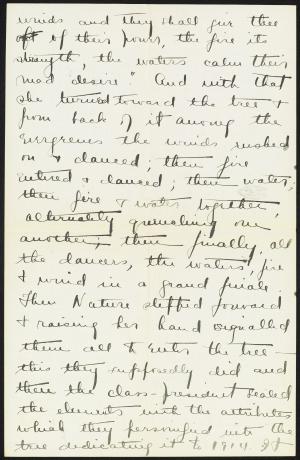 winds and they shall give thee
of their power, the fire its
strength, the waters calm their
mad desire." And with that
she turned toward the tree &
from back of it among the
evergreens the winds rushed
on & danced; then fire
entered & danced; then water,
then fire & water together,
alternately quenching one
another; then finally, all
the dancers, the waters, fire
& wind in a grand finale.
Then Nature stepped forward
& raising her hand signalled
them all to enter the tree –
this they supposedly did and
then the class-president sealed
the elements with the attributes
which they personified into the
tree dedicating it to 1914. It